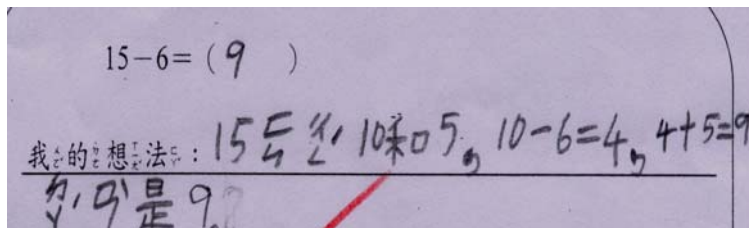 15－6=（9）
我的想法：15ㄈㄣ ㄔㄥˊ 10和5，10-6=4，4+5=9
ㄉㄚˊ ㄢˋ是9